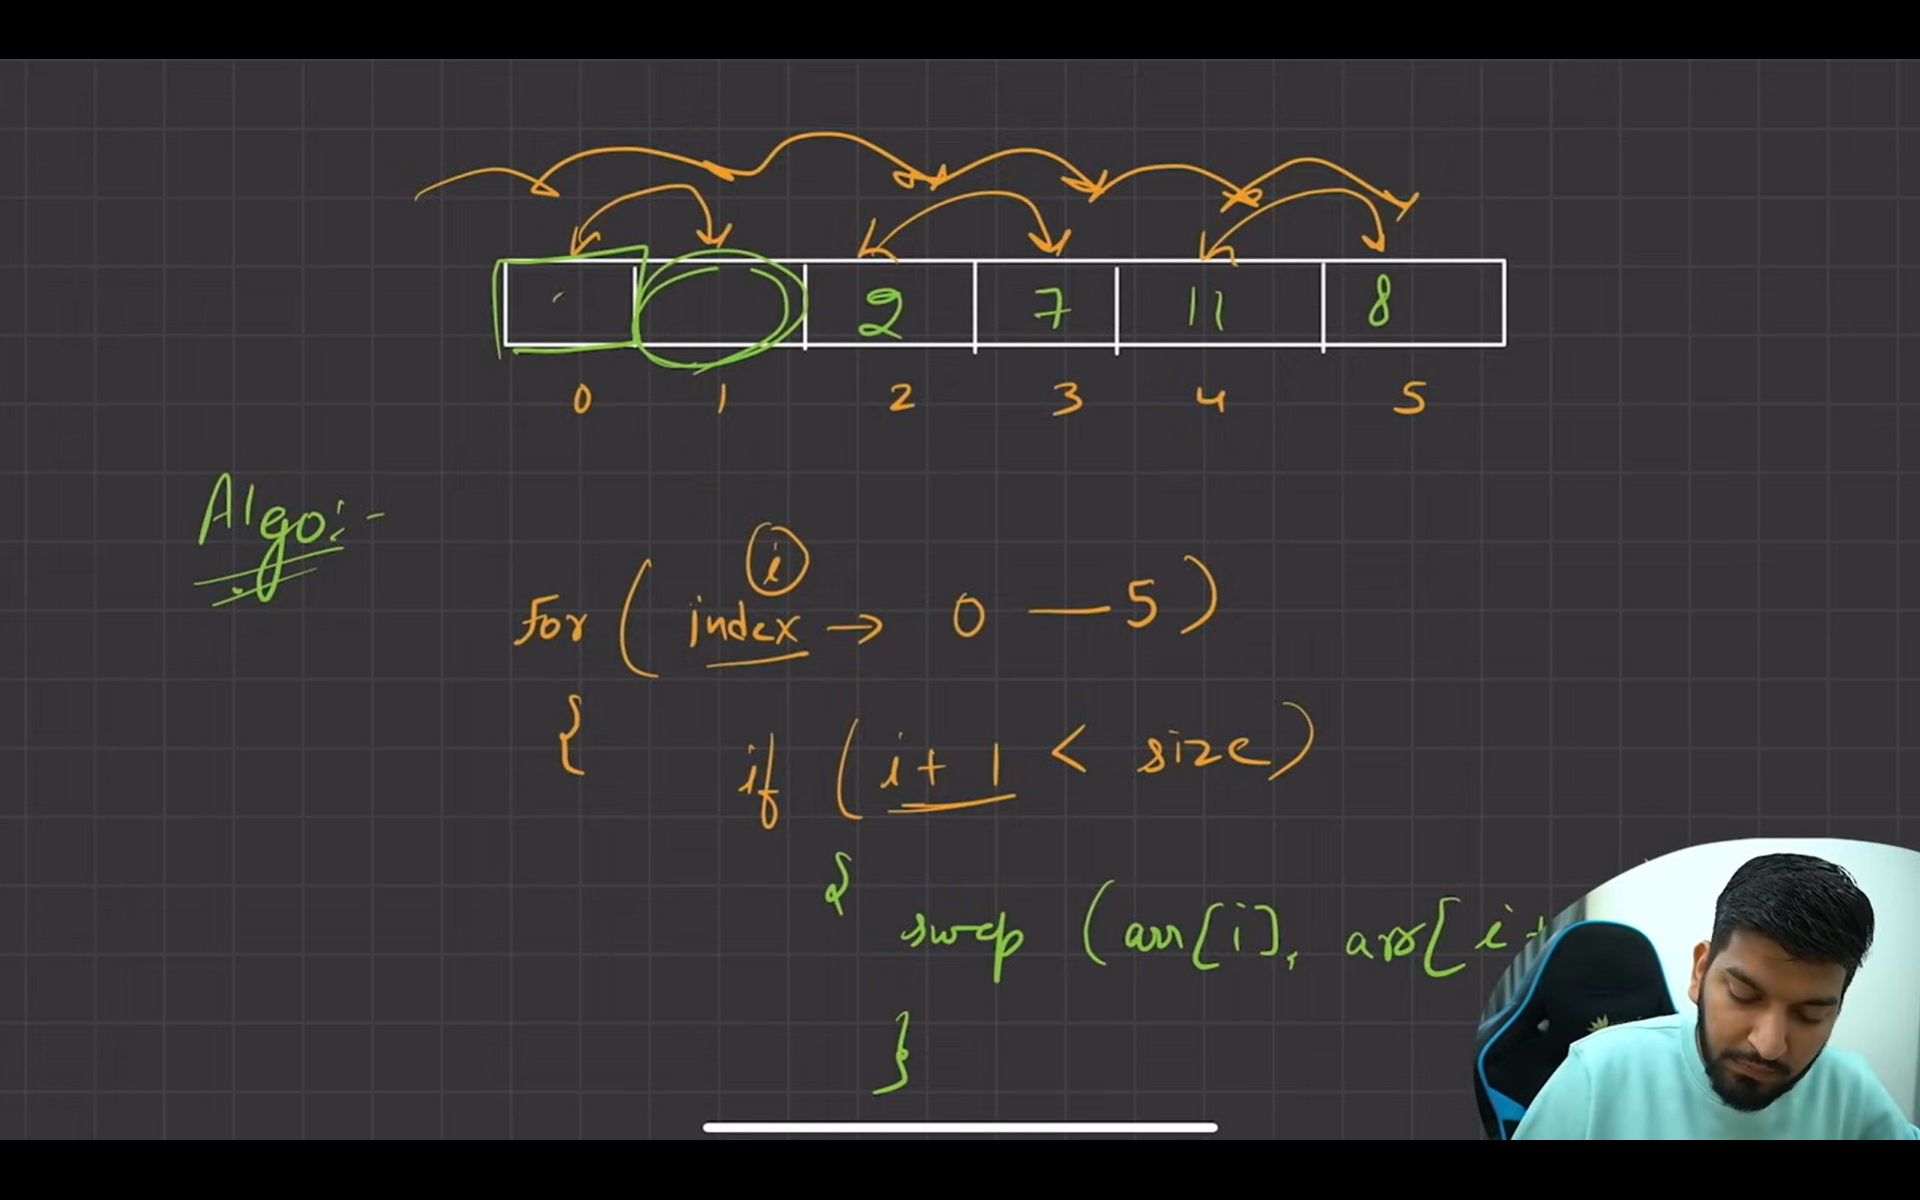 2 7 11 8
0 1 2 3 4 5
Algo:-
i
for ( index → 0 — 5 )
{
if ( i + 1 < size )
{
swap ( arr[i], arr[i +
}